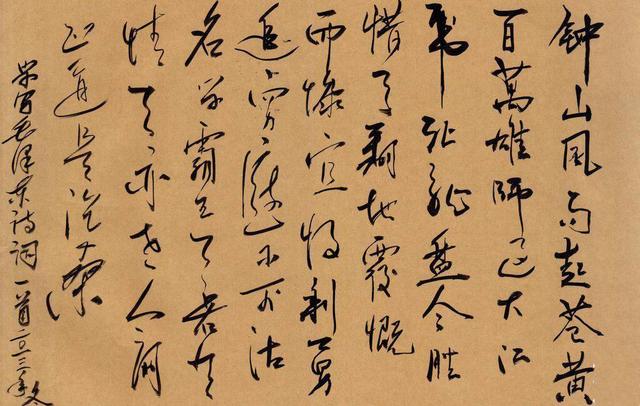 钟山风雨起苍黄
百萬雄師过大江
虎踞龍盘今胜
惜天翻地覆慨
而慷宜将剩勇
追穷寇不可沽
名学霸王天若有
情天亦老人间
正道是沧桑
写毛泽东诗词一首二〇一三年冬